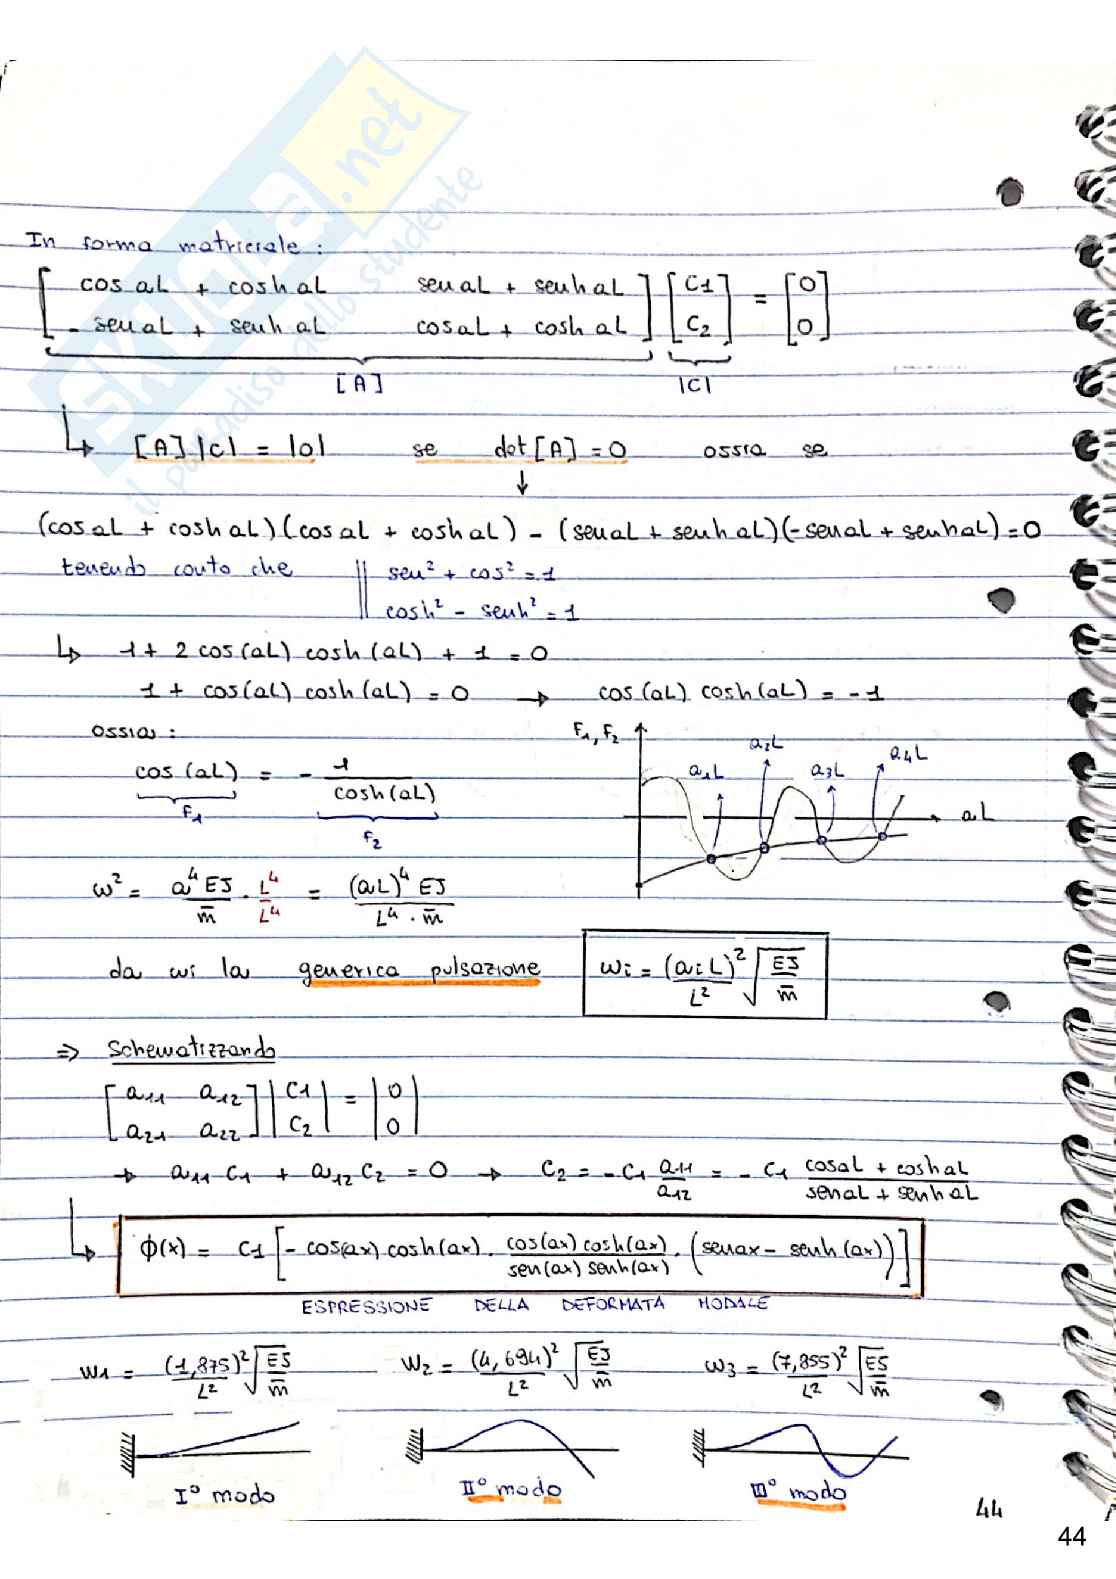 SKUOLA.net
il paradiso dello studente
In forma matriciale :
[ cos aL + cosh aL   sen aL + senh aL ] [ C1 ] = [ 0 ]
[ - sen aL + senh aL   cos aL + cosh aL ] [ C2 ]   [ 0 ]
[A]   |C|
↳ [A] |C| = |0|   se   det [A] = 0   ossia se
↓
(cos aL + cosh aL) (cos aL + cosh aL) - (sen aL + senh aL) (- sen aL + senh aL) = 0
tenendo conto che || sen² + cos² = 1
cosh² - senh² = 1
↳ 1 + 2 cos (aL) cosh (aL) + 1 = 0
1 + cos (aL) cosh (aL) = 0 → cos (aL) cosh (aL) = - 1
ossia :
cos (aL) = - 1 / cosh (aL)
F1   F2
F1, F2   a1L   a2L   a3L   a4L   aL
ω² = a⁴ EJ / m̄ · L⁴ / L⁴ = (aL)⁴ EJ / L⁴ · m̄
da cui la generica pulsazione   ωi = (ai L)² / L² √ EJ / m̄
⇒ Schematizzando
[ a11   a12 ] | C1 | = | 0 |
[ a21   a22 ] | C2 |   | 0 |
→ a11 C1 + a12 C2 = 0 → C2 = - C1 a11 / a12 = - C1 cos aL + cosh aL / sen aL + senh aL
↳ ϕ(x) = C1 [ - cos(ax) cosh (ax) · cos (ax) cosh (ax) / sen (ax) senh (ax) · ( sen ax - senh (ax) ) ]
ESPRESSIONE DELLA DEFORMATA MODALE
W1 = (1,875)² / L² √ EJ / m̄   W2 = (4,694)² / L² √ EJ / m̄   ω3 = (7,855)² / L² √ EJ / m̄
I° modo   II° modo   III° modo
44
44